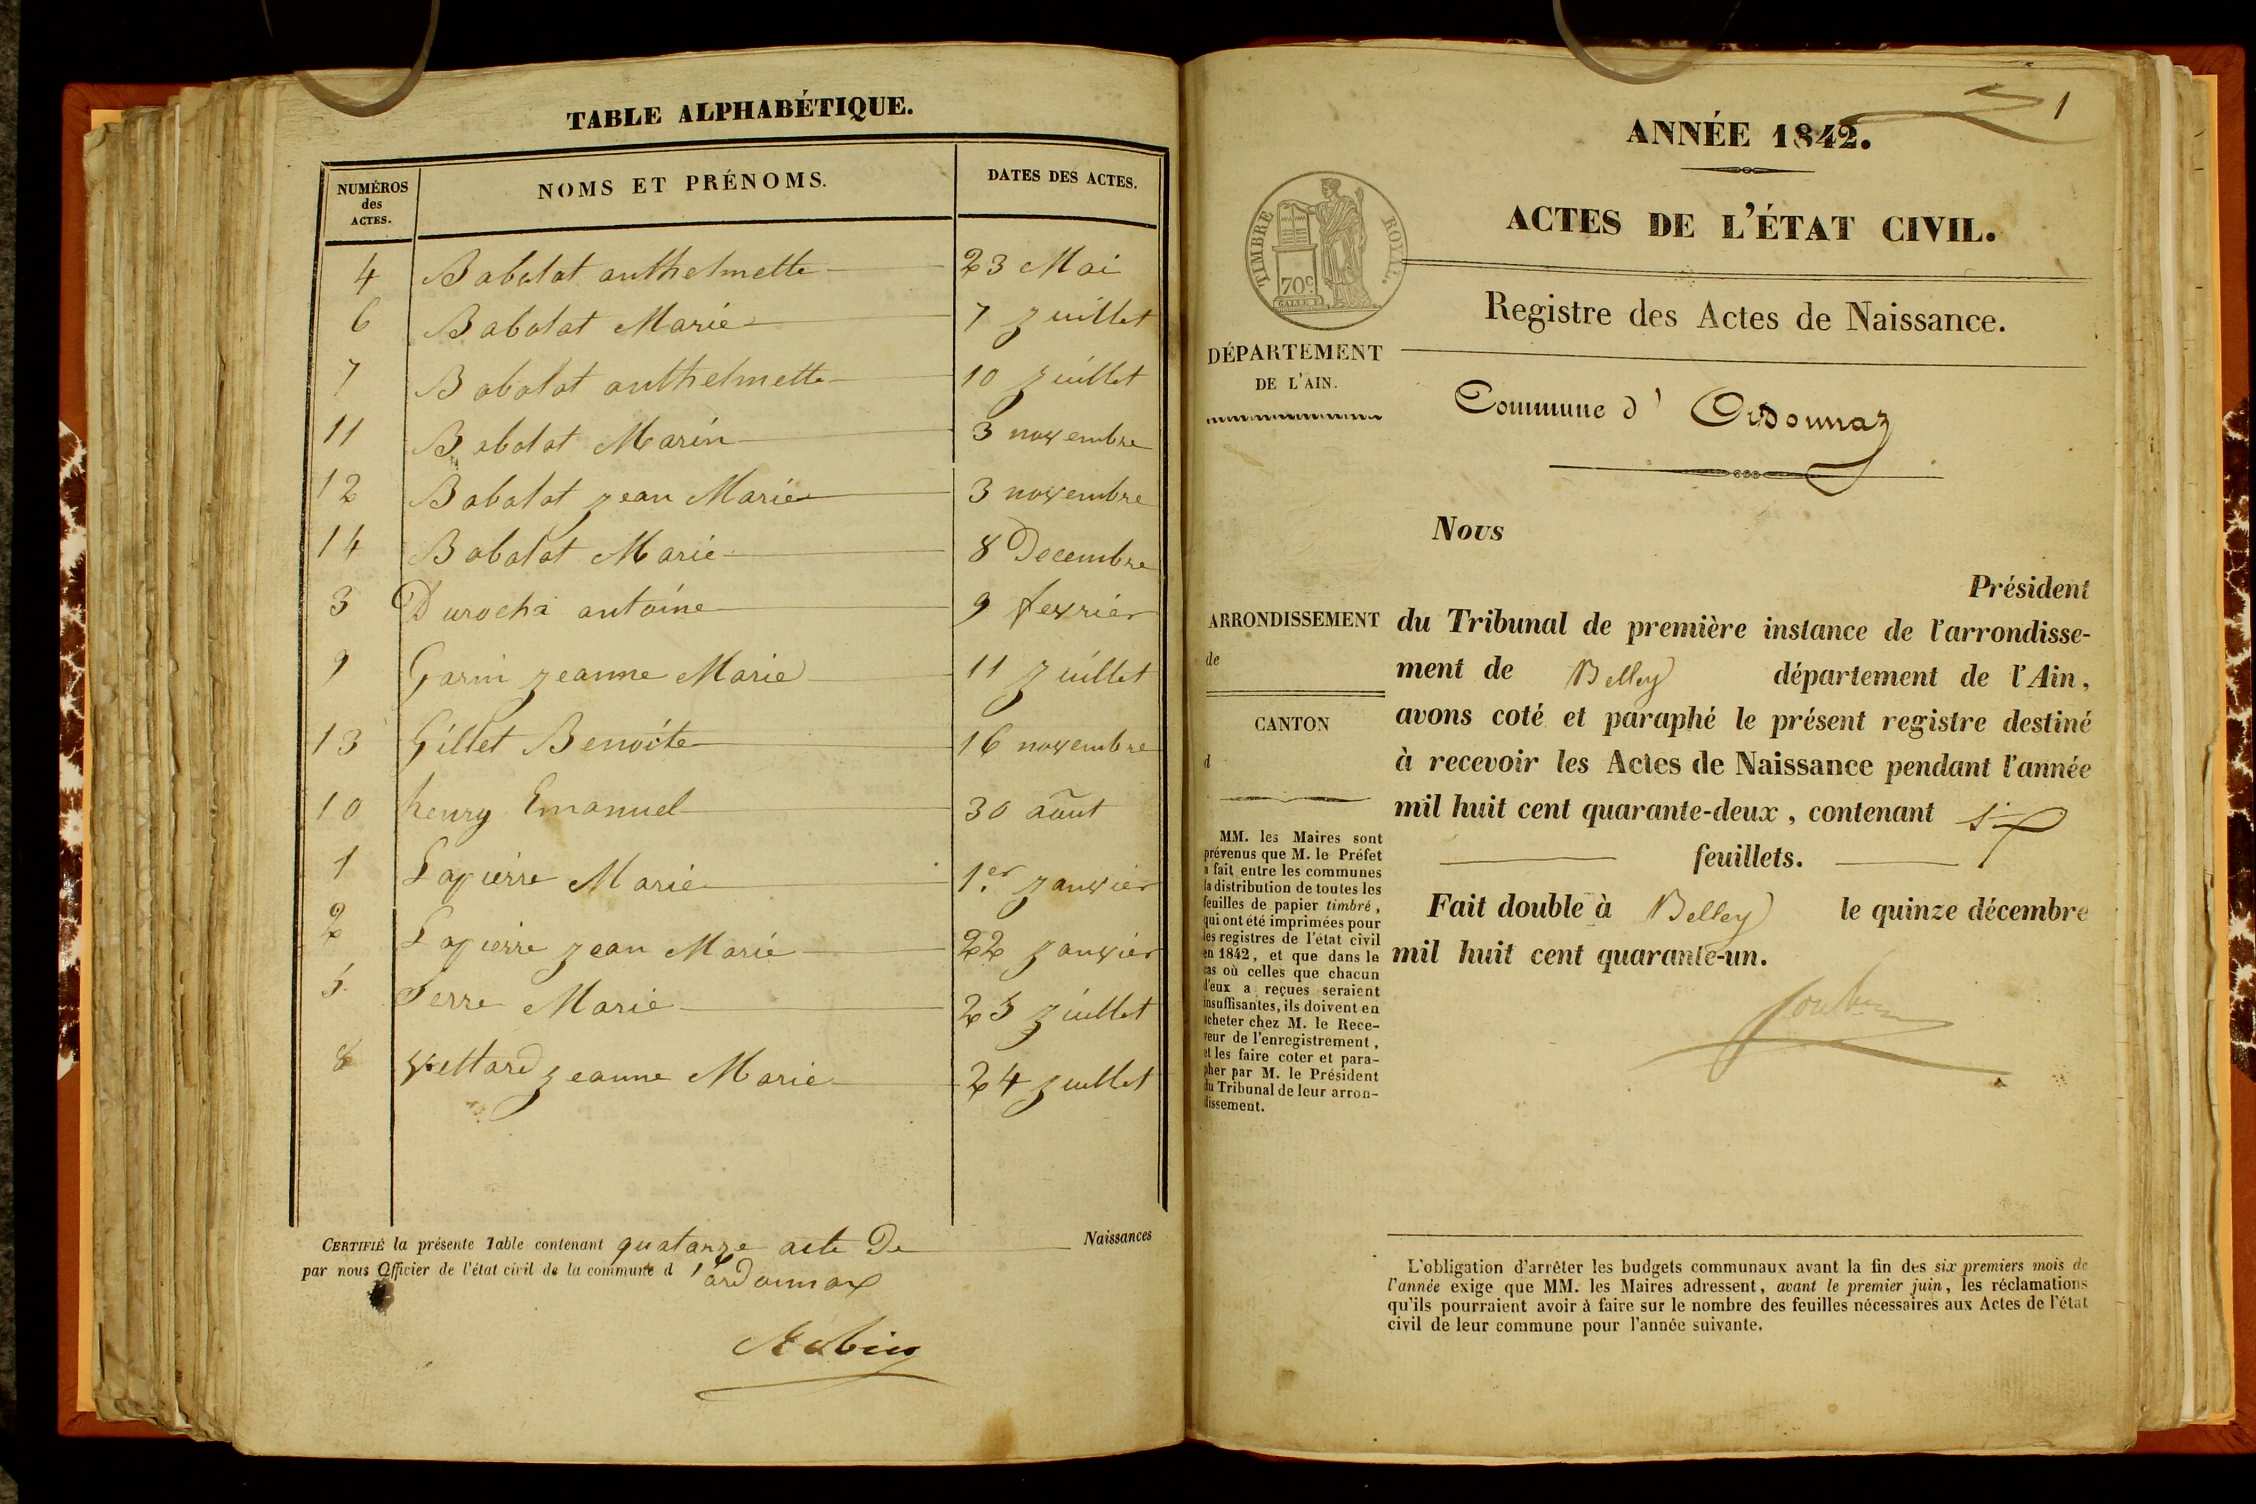 TABLE ALPHABÉTIQUE.
NUMÉROS des ACTES. NOMS ET PRÉNOMS. DATES DES ACTES.
4 Babolat anthelmette 23 Mai
6 Babolat Marie 7 juillet
7 Babolat anthelmette 10 juillet
11 Babolat Marin 3 novembre
12 Babolat jean Marie 3 novembre
14 Babolat Marie 8 Decembre
3 Durochat antoine 9 fevrier
9 Garin jeanne Marie 11 juillet
13 Gillet Benoite 16 novembre
10 henry Emanuel 30 août
1 Lapierre Marie 1er janvier
2 Lapierre jean Marie 22 janvier
5 Serre Marie 25 juillet
8 vettard jeanne Marie 24 juillet
CERTIFIÉ la présente Table contenant quatorze acte De Naissances
par nous Officier de l'état civil de la commune d'ordonnax
ANNÉE 1842. 1
ACTES DE L'ÉTAT CIVIL.
TIMBRE ROYAL.
70c
Registre des Actes de Naissance.
DÉPARTEMENT
DE L'AIN.
Commune d' Ordonnaz
Nous
Président
ARRONDISSEMENT
de
CANTON
d
du Tribunal de première instance de l'arrondisse-
ment de Belley département de l'Ain,
avons coté et paraphé le présent registre destiné
à recevoir les Actes de Naissance pendant l'année
mil huit cent quarante-deux, contenant six
feuillets.
Fait double à Belley le quinze décembre
mil huit cent quarante-un.
MM. les Maires sont
prévenus que M. le Préfet
a fait entre les communes
la distribution de toutes les
feuilles de papier timbré,
qui ont été imprimées pour
les registres de l'état civil
en 1842, et que dans le
cas où celles que chacun
d'eux a reçues seraient
insuffisantes, ils doivent en
acheter chez M. le Rece-
veur de l'enregistrement,
et les faire coter et para-
pher par M. le Président
du Tribunal de leur arron-
dissement.
L'obligation d'arrêter les budgets communaux avant la fin des six premiers mois de
l'année exige que MM. les Maires adressent, avant le premier juin, les réclamations
qu'ils pourraient avoir à faire sur le nombre des feuilles nécessaires aux Actes de l'état
civil de leur commune pour l'année suivante.